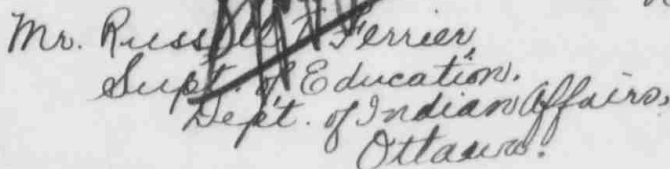 Mr. Russell T. Ferrier,
Supt. of Education.
Dept. of Indian Affairs,
Ottawa.